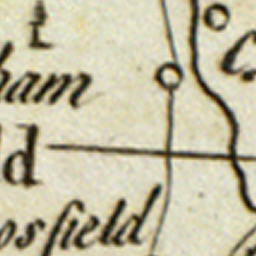 ham
C.
ld
osfield